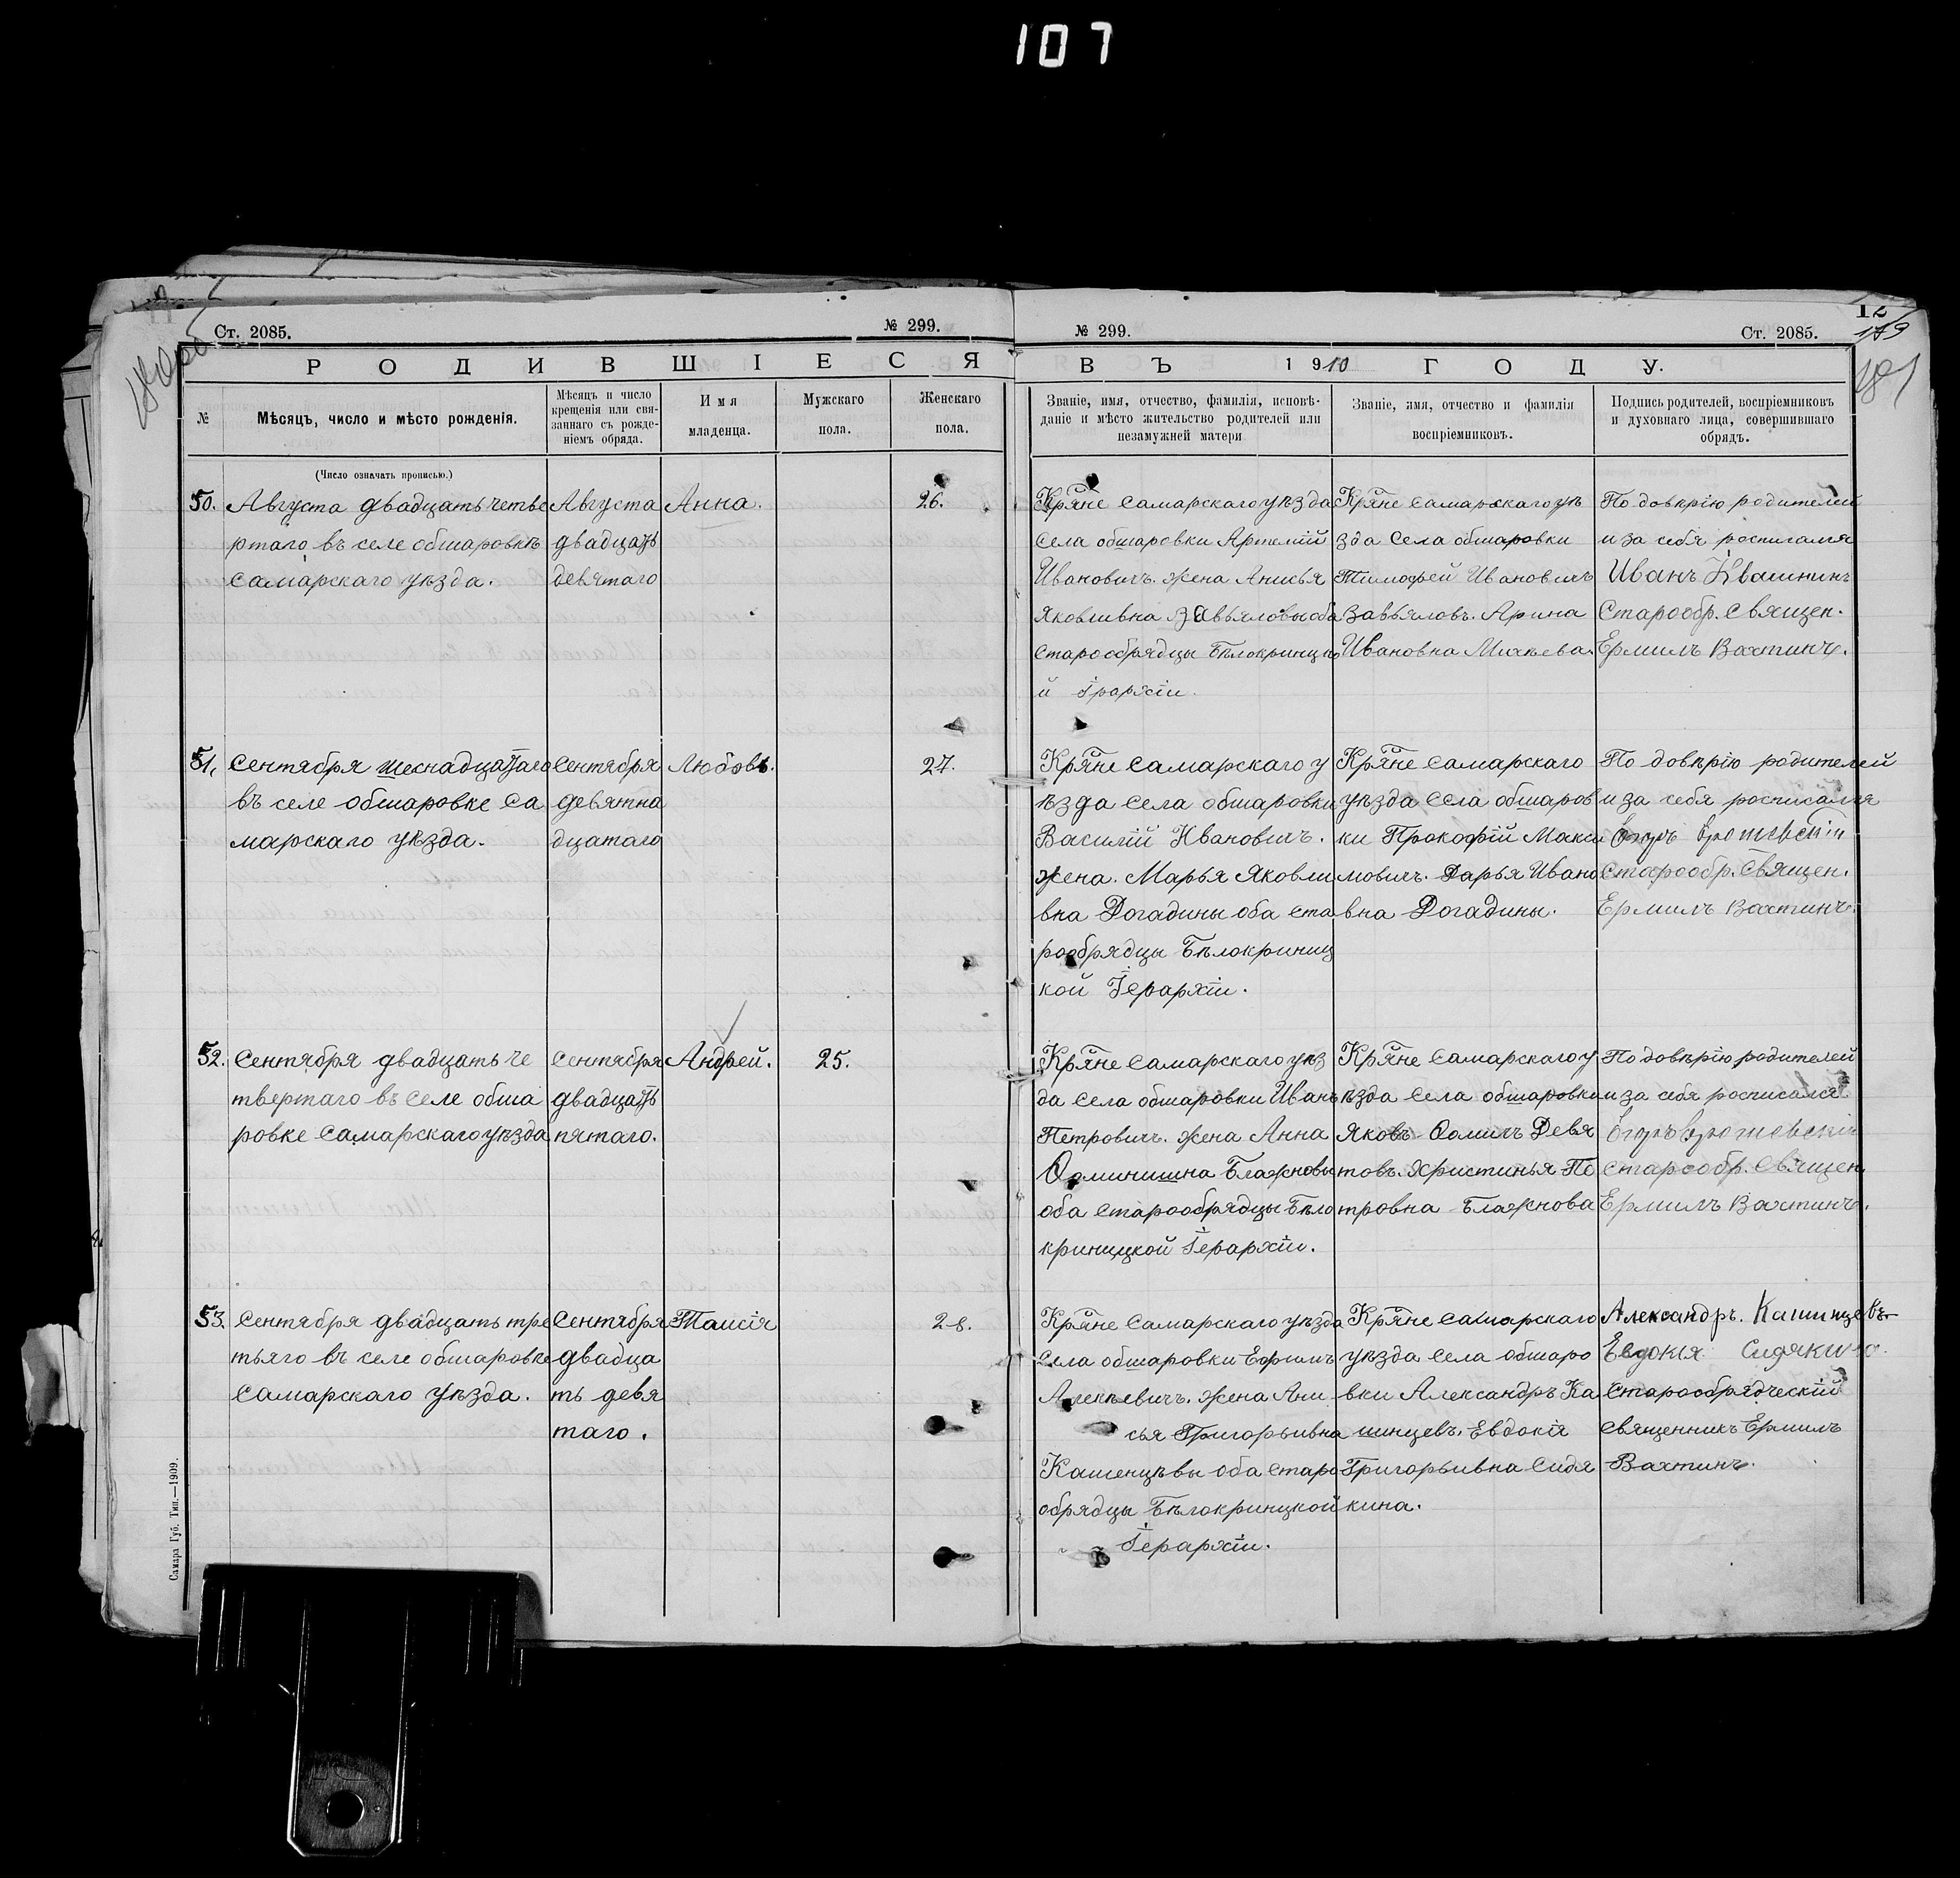 107
Ст. 2085.
№ 299.
№ 299.
Ст. 2085.
12
179
181
РОДИВШІЕСЯ
ВЪ 1910 ГОДУ.
№
Мѣсяцъ, число и мѣсто рожденія.
Мѣсяцъ и число
крещенія или свя-
заннаго съ рожде-
ніемъ обряда.
Имя
младенца.
Мужскаго
пола.
Женскаго
пола.
Званіе, имя, отчество, фамилія, исповѣ-
даніе и мѣсто жительство родителей или
незамужней матери
Званіе, имя, отчество и фамилія
воспріемниковъ.
Подпись родителей, воспріемниковъ
и духовнаго лица, совершившаго
обрядъ.
(Число означать прописью.)
50.
Августа двадцать четве
ртаго въ селе обшаровкѣ
самарскаго уѣзда.
Августа
двадцать
девятаго
Анна.
26.
Кряне самарскаго уѣзда
села обшаровки Артемій
Ивановичъ. жена Анисья
Яковливна Завьяловы оба
старообрядцы Бѣлокриницко
й Іерархіи.
Кряне самарскаго уѣ
зда Села обшаровки
Тимофей Ивановичъ
Завьяловъ. Арина
Ивановна Михѣева.
По довѣрію родителей
и за себя росписался
Иванъ Квашнинъ
Старообр. Священ.
Ермилъ Вахтинъ.
51.
Сентября шеснадцатаго
въ селе обшаровке Са
марскаго уѣзда.
Сентября
девятна
дцатаго
Любовь.
27.
Кряне самарскаго у
ѣзда села обшаровки
Василій Ивановичъ.
жена. Марья Яковли
вна Догадины оба ста
рообрядцы Бѣлокриниц
кой Іерархіи.
Кряне самарскаго
уѣзда села обшаров
ки Прокофій Макси
мовичъ. Дарья Ивано
вна Догадины.
По довѣрію родителей
и за себя росписался
Егоръ
Старообр. Священ.
Ермилъ Вахтинъ.
52.
Сентября двадцать че
твертаго въ селе обша
ровке Самарскаго уѣзда
Сентября
двадцать
пятаго.
Андрей.
25.
Кряне самарскаго уѣз
да села обшаровки Иванъ
Петровичъ. жена Анна
Ѳоминишна Блажновы
оба старообрядцы Бѣло
криницкой Іерархіи.
Кряне самарскаго у
ѣзда села обшаровки
Яковъ Ѳомичъ Девя
товъ. Христинья Пе
тровна Блажнова
По довѣрію родителей
и за себя росписался
Егоръ
Старообр. Священ.
Ермилъ Вахтинъ.
53.
Сентября двадцать тре
тьяго въ селе обшаровке
Самарскаго уѣзда.
Сентября
двадца
ть девя
таго.
Таисія
28.
Кряне самарскаго уѣзда
села обшаровки Ефимъ
Алексѣевичъ. жена Ани
сья Григорьивна
Кашенцѣвы оба старо
обрядцы Бѣлокриницкой
Іерархіи.
Кряне самарскаго
уѣзда села обшаро
вки Александръ Ка
шинцевъ. Евдокія
Григорьивна Сидя
кина.
Александръ. Кашинцевъ
Евдокія Сидякина.
Старообрядческій
Священникъ Ермилъ
Вахтинъ.
Самара Губ. Тип.—1909.